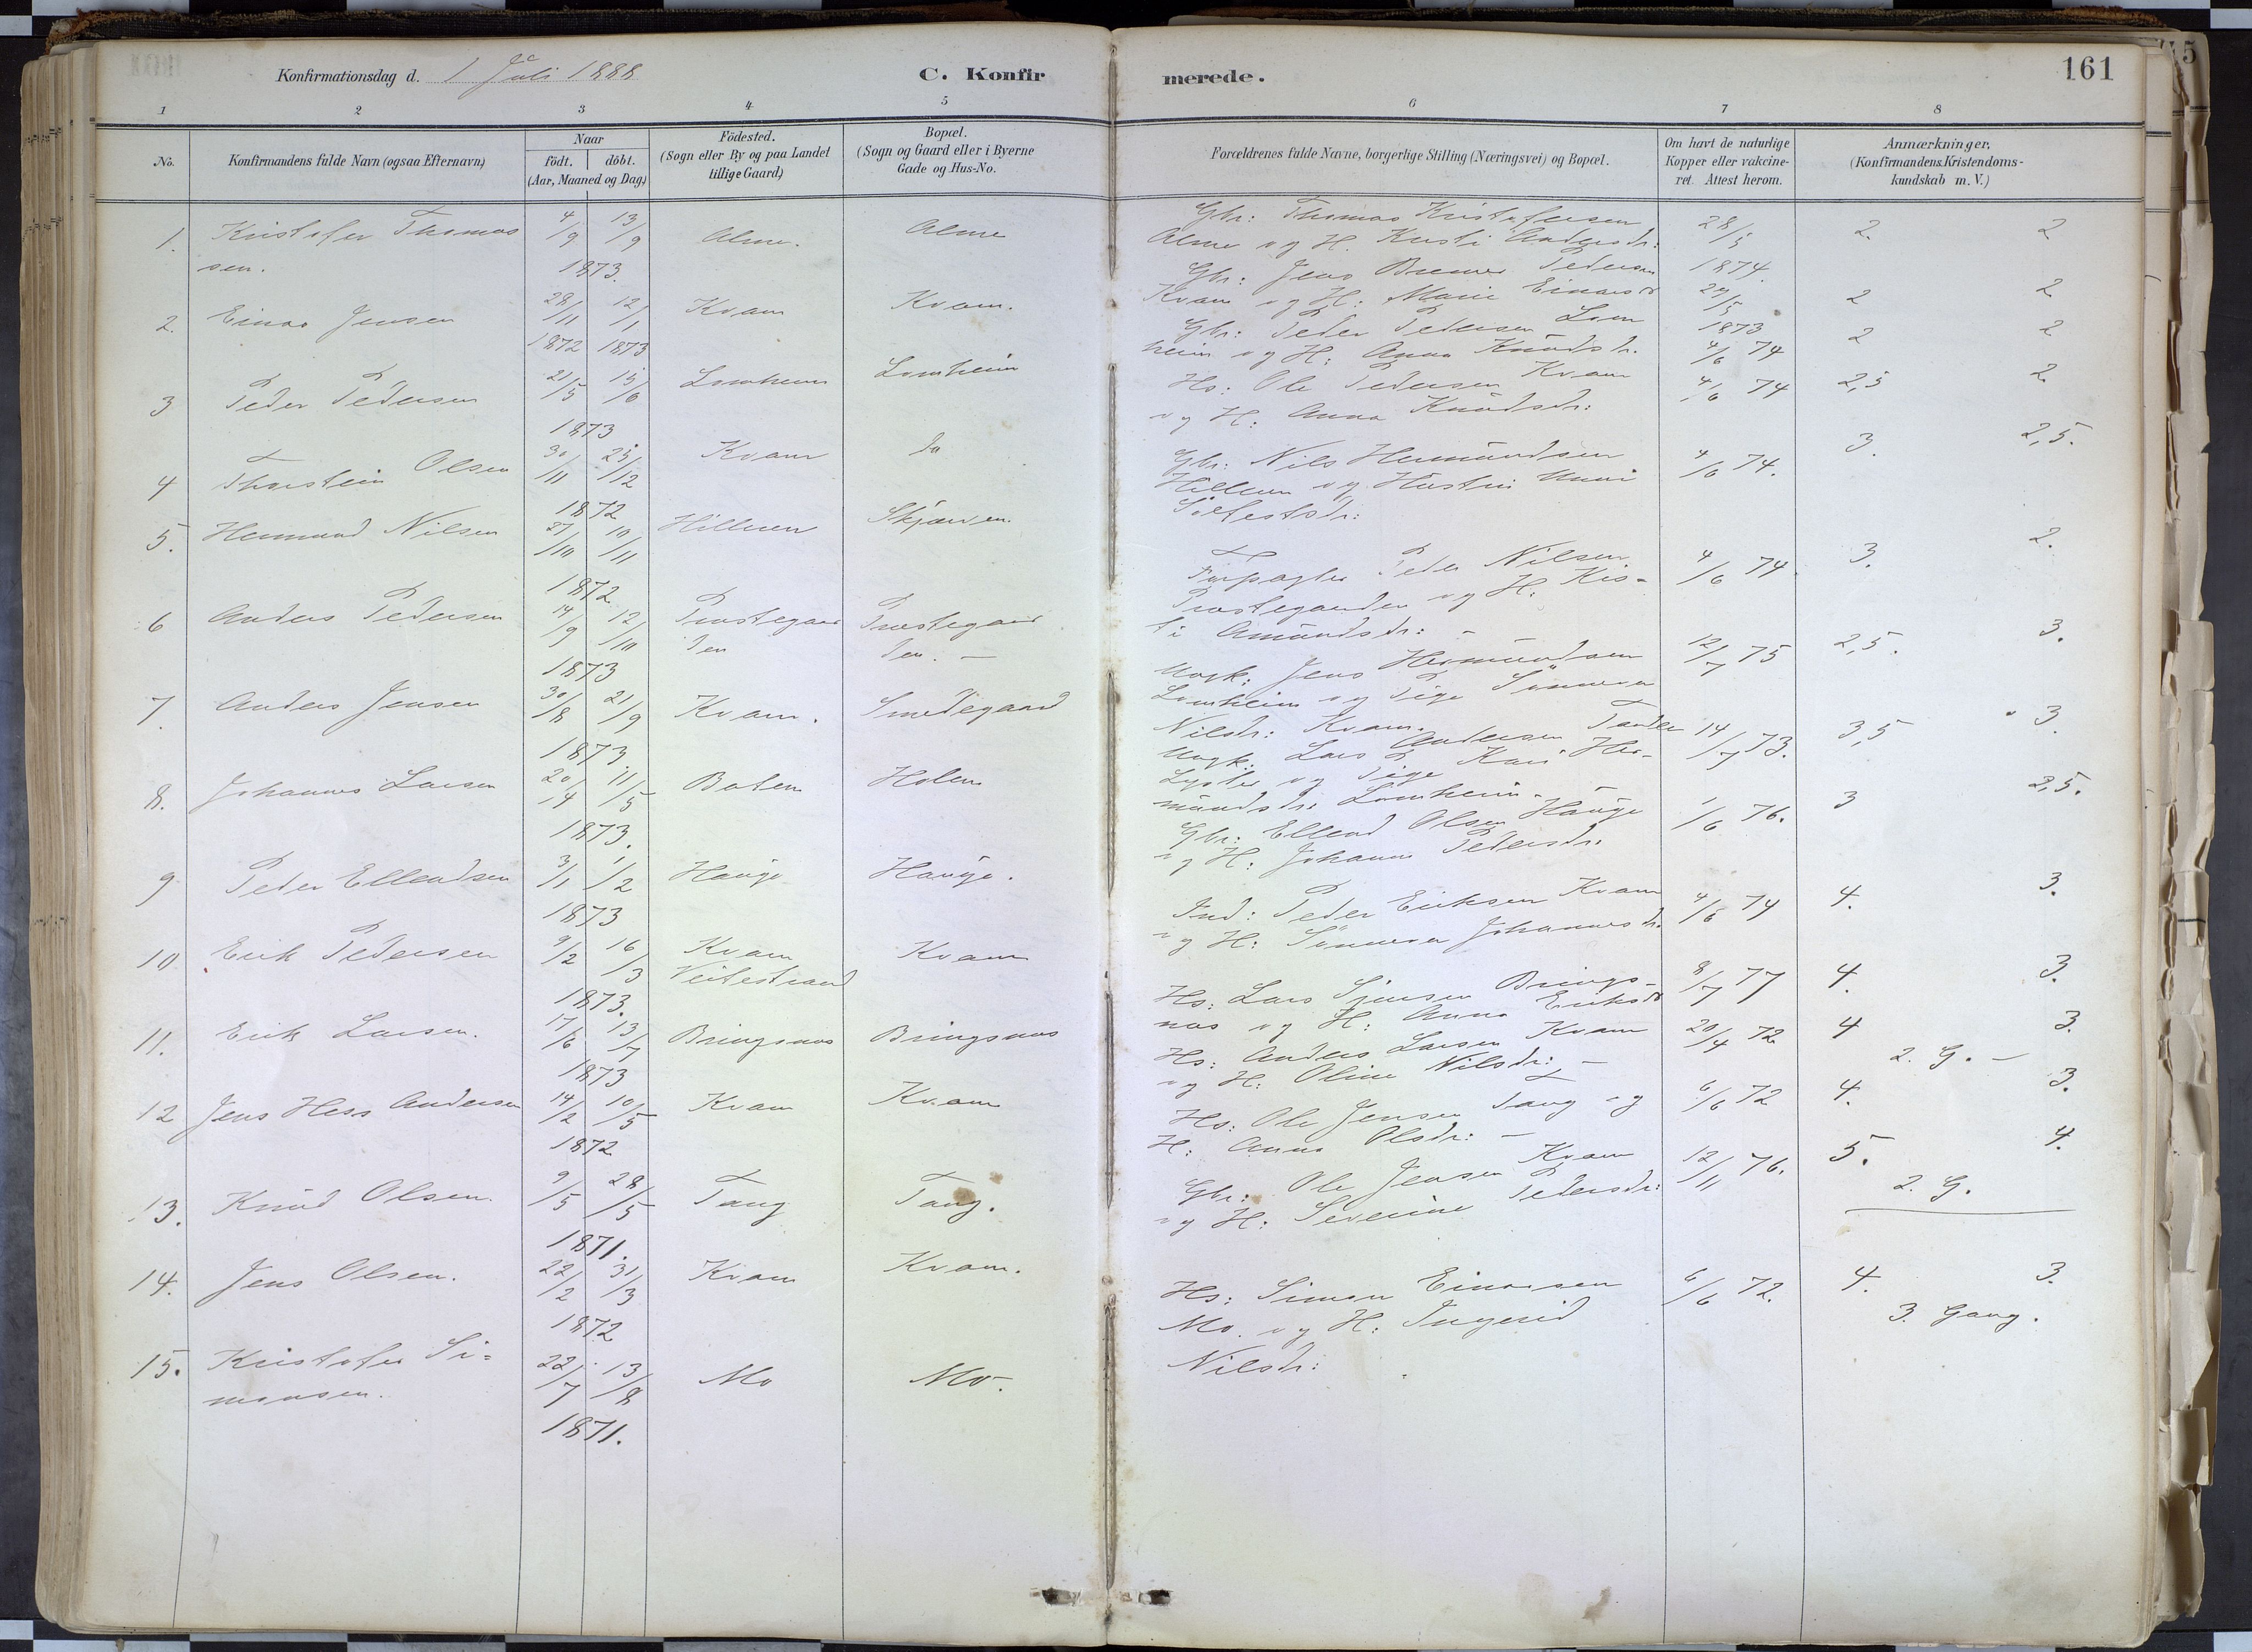 Konfirmationsdag d. 1 Juli 1888
C. Konfir
merede.
161
1 2 3 4 5 6 7 8
No.
Konfirmandens fulde Navn (ogsaa Efternavn)
Naar
födt. döbt.
(Aar, Maaned og Dag.)
Födested.
(Sogn eller By og paa Landet
tillige Gaard)
Bopæl.
(Sogn og Gaard eller i Byerne
Gade og Hus-No.
Forældrenes fulde Navne, borgerlige Stilling (Næringsvei) og Bopæl.
Om havt de naturlige
Kopper eller vakcine-
ret. Attest herom.
Anmærkninger.
(Konfirmandens Kristendoms-
kundskab m. V.)
1. Kristofer Thomas 4/9 13/9 Alme. Alme
sen. 1873.
2. Einar Jensen 28/11 12/1 Kvam Kvam.
1872 1873
3 Peder Pedersen 21/5 15/6 Lomheim Lomheim
1873
4 Thorstein Olsen 30/11 25/12 Kvam do
1872
5. Hermund Nilsen 27/10 10/11 Hillern Skjærven.
1872
6 Anders Pedersen 14/9 12/10 Prostegaar Prostegaar
den den. -
1873
7. Anders Jensen 30/8 21/9 Kvam. Smedegaard
1873.
8. Johannes Larsen 20/4 11/5 Bolen Holen
1873.
9 Peder Ellendsen 3/1 1/2 Hauge Hauge.
1873
10 Erik Pedersen 9/2 16/3 Kvam Kvam
Veitestrand
1873.
11. Erik Larsen. 17/6 13/7 Bringsnæs Bringsnæs
1873
12 Jens Hess Andersen 14/2 10/5 Kvam Kvam
1872
13. Knud Olsen. 9/5 28/5 Tang Tang.
1871.
14. Jens Olsen. 22/2 31/3 Kvam Kvam.
1872
15. Kristofer Si=
monsen. 22/7 13/8 Mo Mo.
1871.
Gbr: Thomas Kristofersen 28/5 2. 2
Alme og H. Kersti Andersdr: 1874.
Gbr: Jens Bremer Pedersen
Kvam og H: Marie Einarsdr 29/5 2 2
Gbr: Peder Pedersen Lom 1873
heim og H: Anna Knudsdr. 4/6 74 2 2
Hs: Ole Pedersen Kvam 4/6 74 2,5 2.
og H: Anna Knudsdr:
Gbr: Nils Hermundsen 4/6 74. 3. 2,5.
Hillern og Hustru Unni
Sjulfestsdr:
Forpagter Peder Nilsen 4/6 74. 3. 2.
Prostegaarden og H. Kis-
ti Amundsdr: -
Ungk: Jens Hermundsen 12/7 75 2,5. 3.
Lomheim og Pige Sünneva
Nilsdr: Kvam.
Ungk: Lars Andersen Tander 14/7 73. 3,5 3.
Lyster og Pige Kari Her-
mundsdr: Lomheim -
Gbr: Ellend Olsen Hauge 1/6 76. 3 2,5.
og H: Johanne Pedersdr.
Ind: Peder Eriksen Kvam 4/6 74 4. 3.
og H: Sünneva Johannesdr.
Hs: Lars Simonsen Brings- 8/7 77 4. 3.
næs og H: Anna Eriksdr
Hs: Anders Larsen Kvam 20/4 72. 4 3.
og H: Oline Nilsdr: - 2. G. -
Hs: Ole Jensen Tang og 6/6 72 4. 3.
H: Anna Olsdr: -
Gbr: Ole Jensen Kvam 12/11 76. 5. 4.
og H: Severine Pedersdr: 2. G.
Hs: Simon Einarsen 6/6 72. 4. 3.
Mo. og H: Ingerid 3. Gang.
Nilsdr: